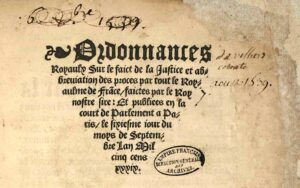 Ordonnances
Royaulx Sur le faict de la Justice et ab-
breviation des proces par tout le Roy-
aulme de Frãce, faictes par le Roy
nostre sire: Et publiees en la
court de Parlement a Pa-
ris, le sixiesme iour du
moys de Septem-
bre Lan Mil
cinq cens
xxxix.
EMPIRE FRANÇAIS
DIRECTION GENERALE
des
ARCHIVES